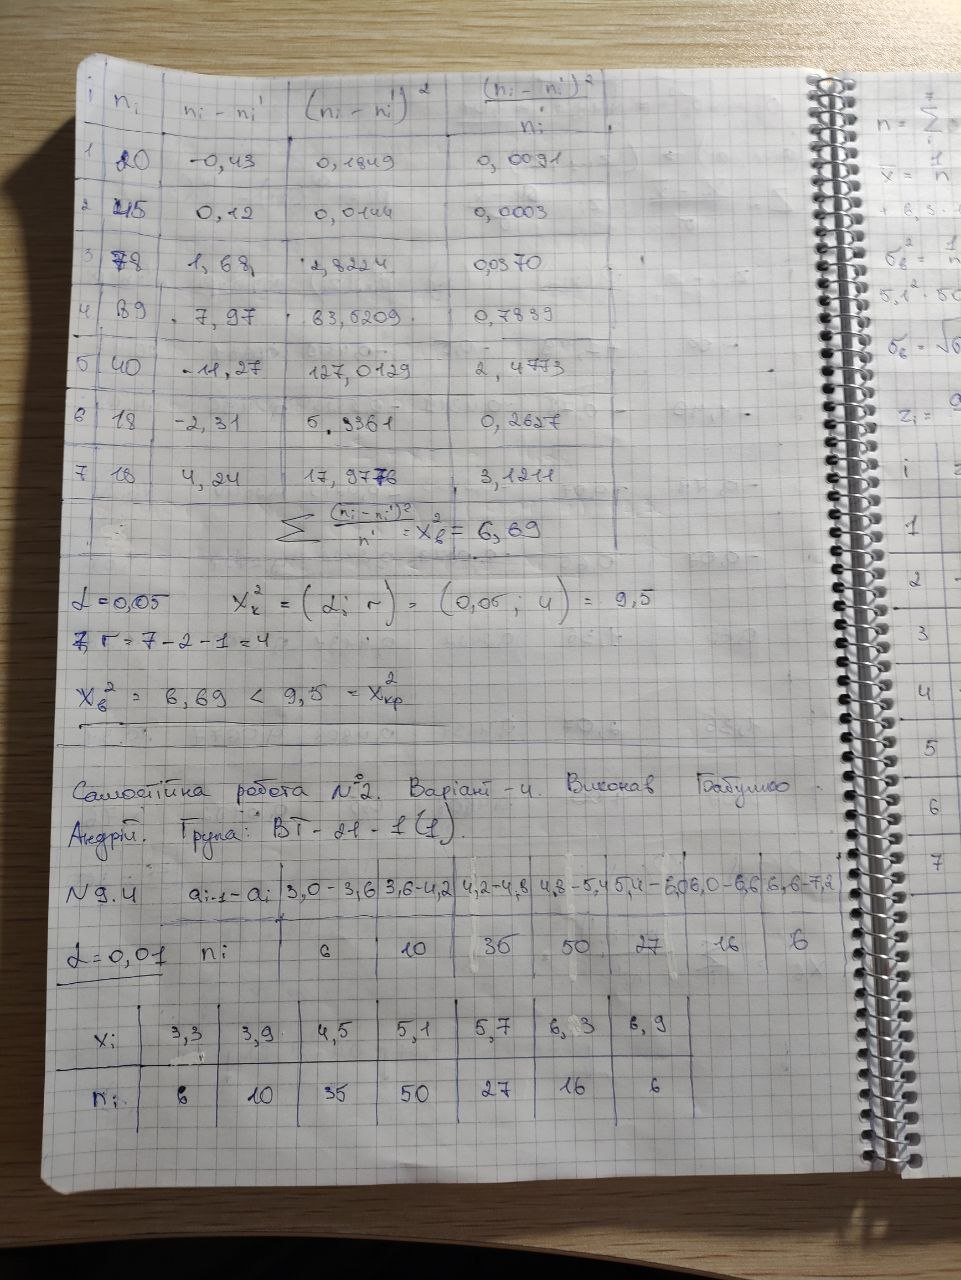 i nᵢ nᵢ - nᵢ' (nᵢ - nᵢ')² (nᵢ - nᵢ')² / nᵢ'
1 20 -0,43 0,1849 0,0091
2 45 0,12 0,0144 0,0003
3 78 1,68 2,8224 0,0370
4 89 7,97 63,5209 0,7839
5 40 -11,27 127,0129 2,4773
6 18 -2,31 5,3361 0,2627
7 18 4,24 17,9776 3,1211
∑ (nᵢ - nᵢ')² / n' = Xв² = 6,69
α = 0,05 Xк² = (α; r) = (0,05; 4) = 9,5
7, r = 7 - 2 - 1 = 4
Xв² = 6,69 < 9,5 = Xкр²
Самостійна робота №2. Варіант - 4. Виконав
Андрій. Група: ВТ - 21 - 1 (1).
N 9.4 aᵢ₋₁ - aᵢ 3,0 - 3,6 3,6 - 4,2 4,2 - 4,8 4,8 - 5,4 5,4 - 6,0 6,0 - 6,6 6,6 - 7,2
α = 0,01 nᵢ 6 10 35 50 27 16 6
xᵢ 3,3 3,9 4,5 5,1 5,7 6,3 6,9
nᵢ 6 10 35 50 27 16 6
n = ∑
x̄ = 1/n
+ 6,3
σв² = 1/n
5,1² · 50
σв = √
zᵢ =
i
1
2
3
4
5
6
7